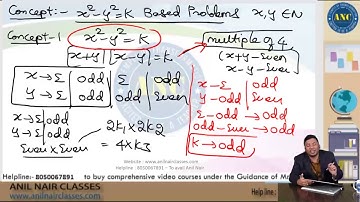 Concept:- x²-y²=K Based Problems x,y∈N
Concept-1 x²-y²=K
multiple of 4
(x+y)(x-y)=K
(x+y-Even
x-y-Even)
x→Σ odd Σ odd
y→Σ odd odd Even
x-Σ odd
y-odd Even
x→Σ odd
y→Σ odd
2K₁×2K₂
Even×Even =4×K₃
Σ-odd→odd
odd-Even→odd
K→odd
ANC
Website : www.anilnairclasses.com
Helpline : 8050067891 - To avail Anil Nair
Helpline:- 8050067891 to buy comprehensive video courses under the Guidance of M
ANIL NAIR CLASSES
www.anilnairclasses.com
Helpline :